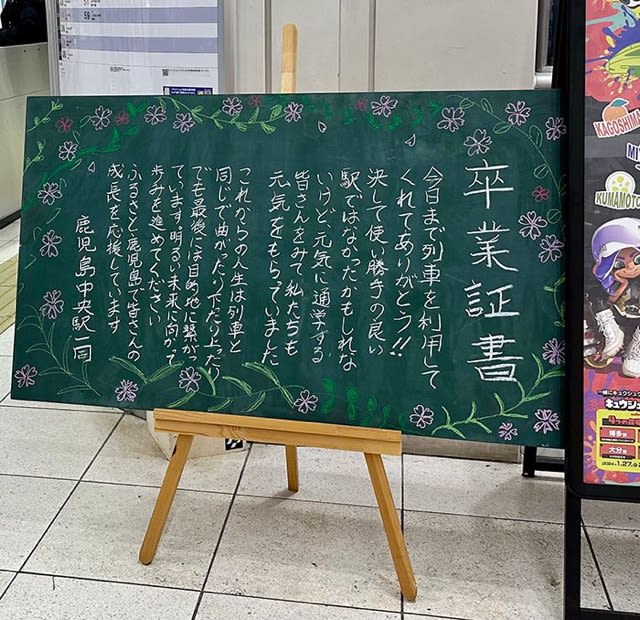 卒業証書
今日まで列車を利用して
くれてありがとう!!
決して使い勝手の良い
駅ではなかったかもしれな
いけど、元気に通学する
皆さんをみて私たちも
元気をもらっていました
これからの人生は列車と
同じで曲がったり下ったり上ったり
でも最後には目的地に繋がっ
ています。明るい未来に向かって
歩みを進めてください
ふるさと鹿児島で皆さんの
成長を応援しています
鹿児島中央駅一同
KAGOSHIMA
KUMAMOTO
一緒にキュウシュウ
キュウシュ
博多駅
大分駅
2024.1.27